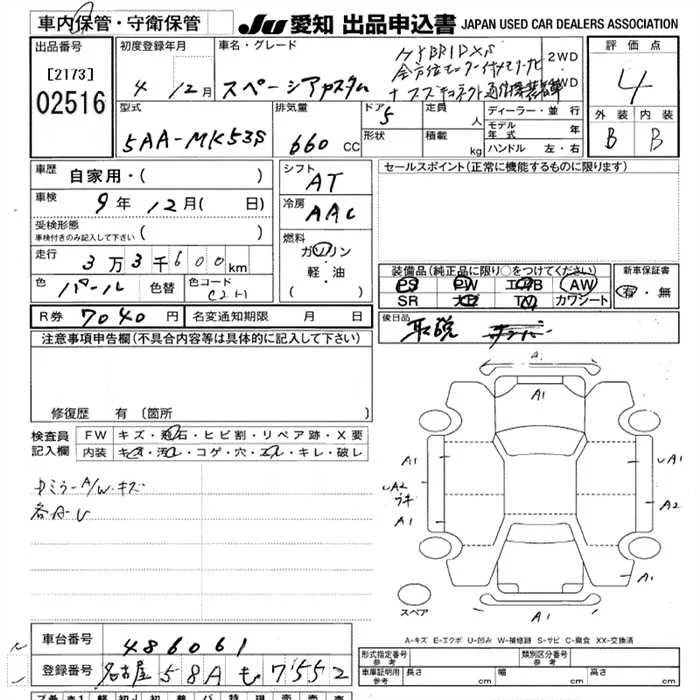 車内保管・守衛保管
JU 愛知 出品申込書 JAPAN USED CAR DEALERS ASSOCIATION
出品番号
[2173]
02516
初度登録年月
4年 12月
車名・グレード
スペーシアカスタム
HYBRID XS
2WD
4WD
評価点
4
外装 内装
B B
型式
5AA-MK53S
排気量
660 CC
ドア 5
形状
定員 人
積載 kg
ディーラー・並行
モデル年式 年
ハンドル 左・右
車歴 自家用・( )
車検 9年 12月( 日)
受検形態
車検付きのみ記入して下さい ( )
走行 3万3千600km
色 パール 色替 色コード
シフト AT
冷房 AAC
燃料
ガソリン
軽・油
( )
R券 7040円 名変通知期限 月 日
セールスポイント(正常に機能するものに限ります)
装備品(純正品に限り○をつけてください)
PS PW エアB AW
SR TV カワシート
新車保証書
有・無
後日品 取説
注意事項申告欄(不具合内容等は具体的に記入して下さい)
修復歴 有〔箇所
検査員記入欄
FW キズ・飛石・ヒビ割・リペア跡・X要
内装 キズ・汚れ・コゲ・穴・スレ・キレ・破レ
A
A1
A1
A1
UA2
ウキ
UA1
A2
A1
A1
スペア
A-キズ E-エクボ U-凹み W-補修跡 S-サビ C-腐食 XX-交換済
車台番号 486061
登録番号 名古屋 58A も 7552
形式指定番号
参考
類別区分番号
参考
車庫証明用
参考
長さ cm 幅 cm 高さ cm